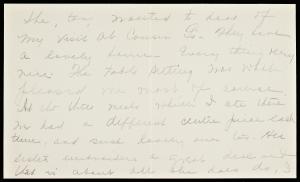 She, too, wanted to hear of
my visit at Cousin Jo. They have
a lovely home. Everything very
nice. The table setting was what
pleased me most of course.
At the three meals which I ate there
we had a different centre piece each
time, and such lovely ones too. Her
sister embroiders a great deal and
that is about all she does do, I